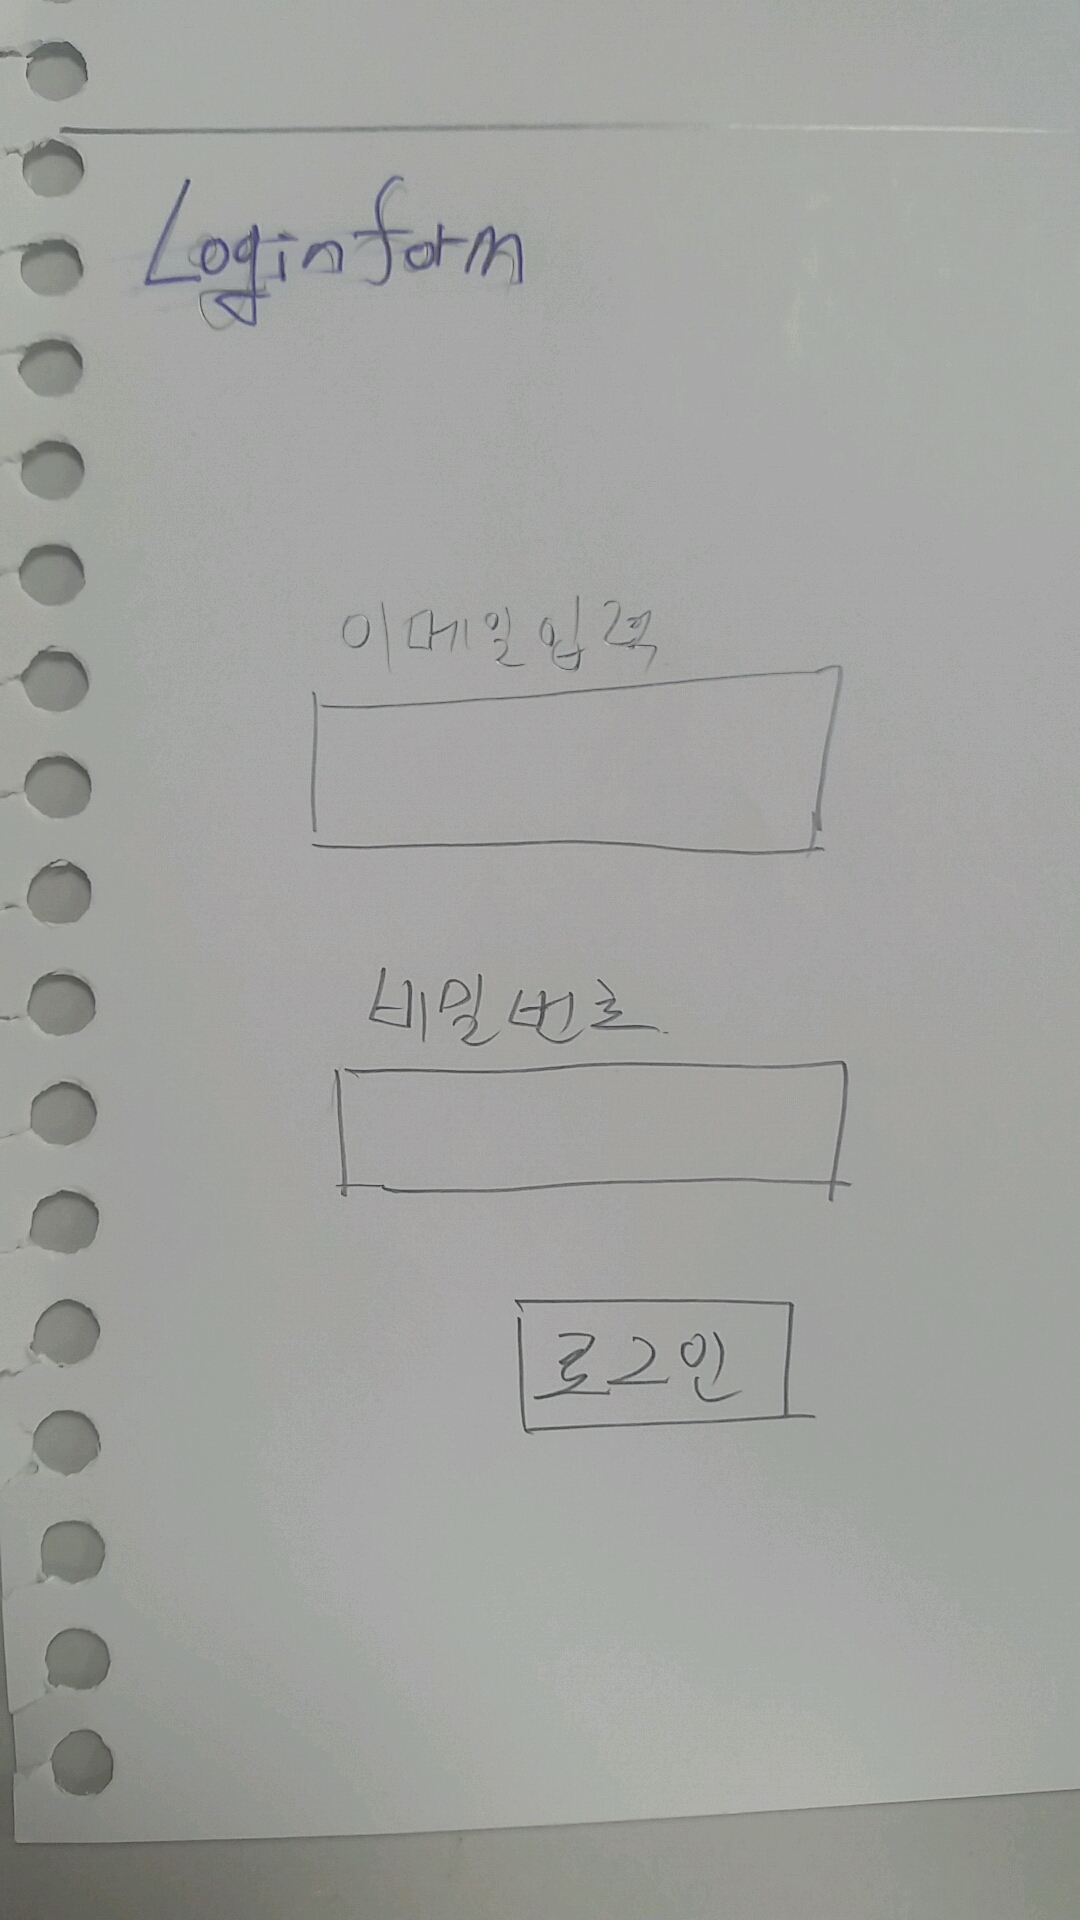 Login form
이메일 입력
비밀번호
로그인